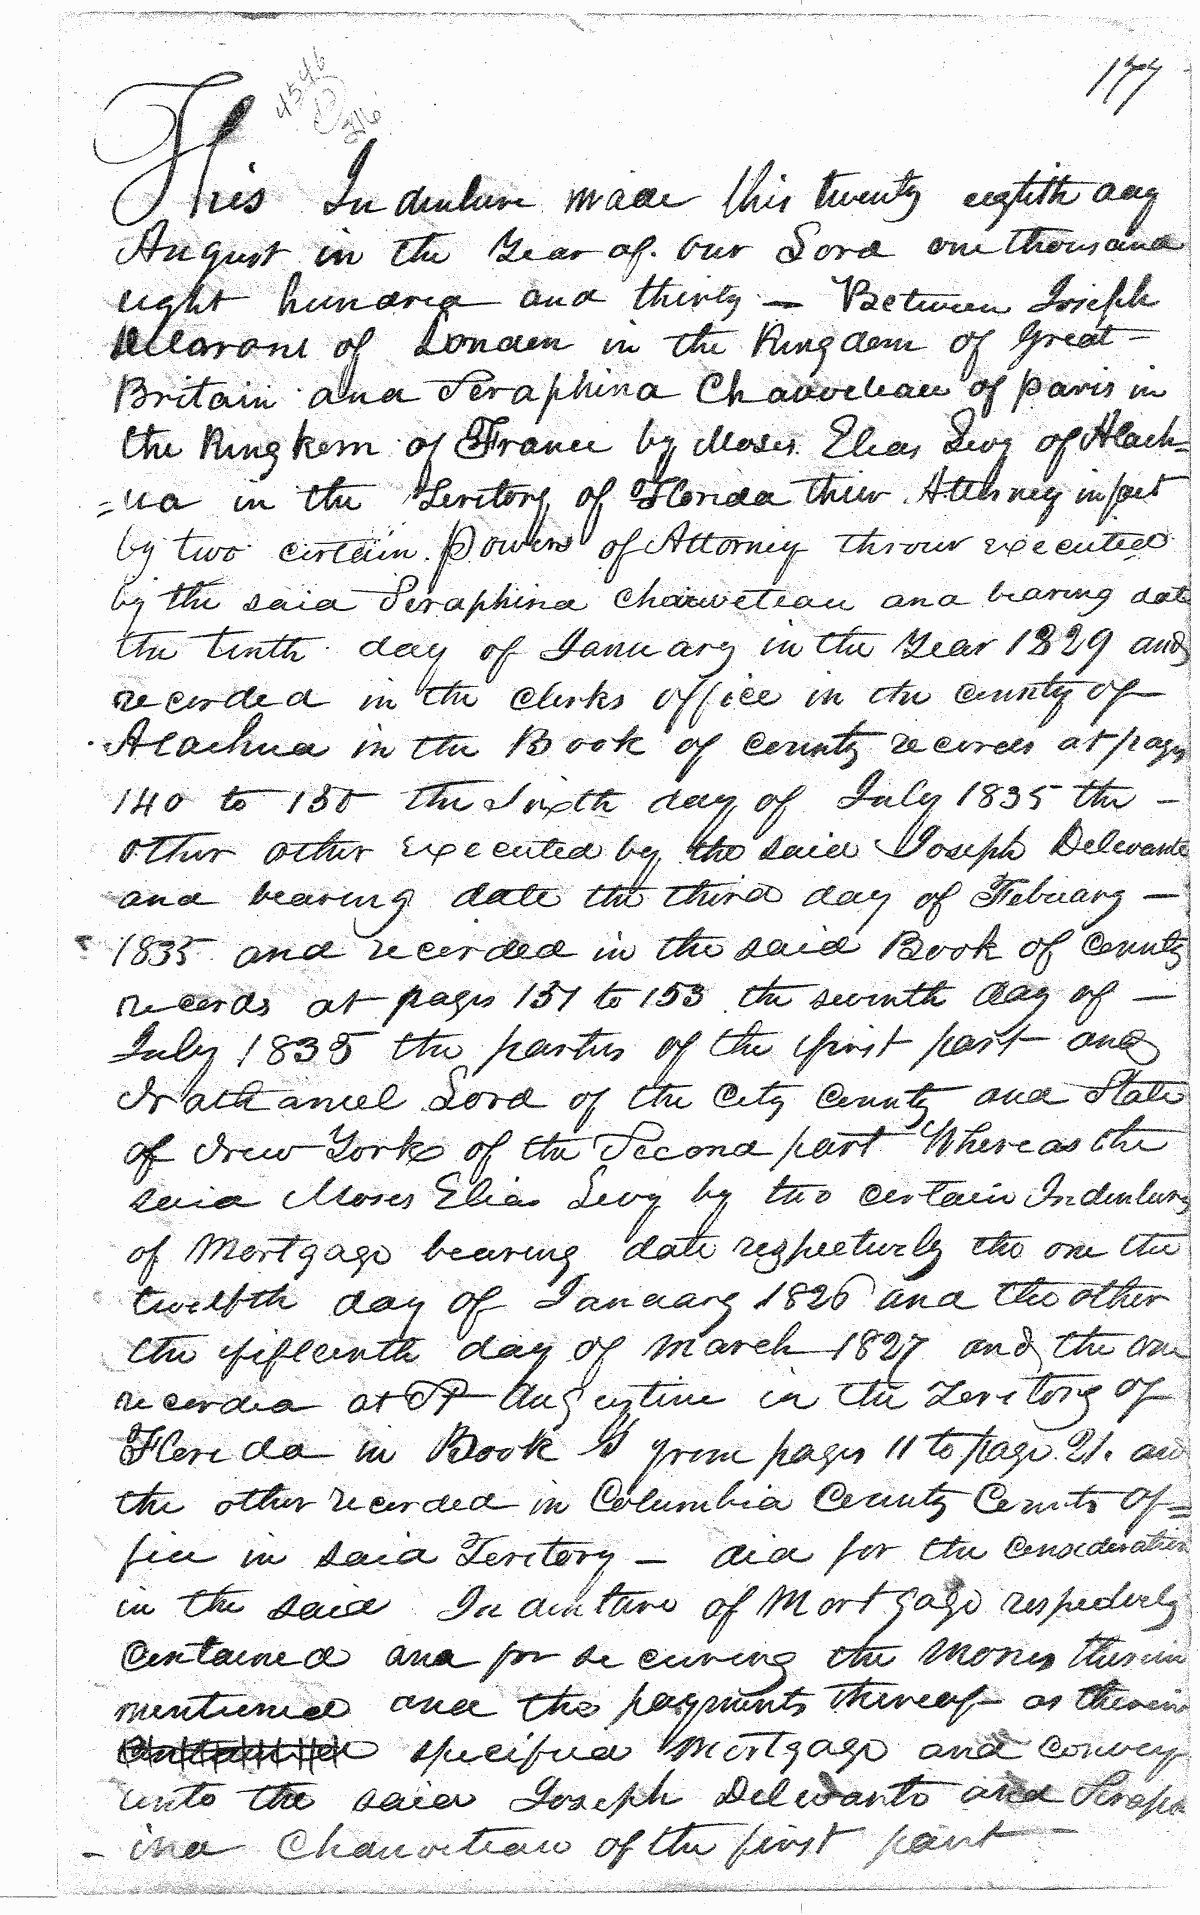 177
4546
216
This Indenture made this twenty eighth day
August in the Year of our Lord one thousand
eight hundred and thirty — Between Joseph
of London in the Kingdom of Great —
Britain and Seraphina Chauveteau of paris in
the Kingkom of France by Moses Elias Levy of Alach-
=ua in the Teritory of Florida thier Attorney in fact
by two certain Powers of Attorney thereof executed
by the said Seraphina Chauveteau and bearing date
the tenth day of January in the Year 1829 and
recorded in the clerks office in the county of
Alachua in the Book of County records at pages
140 to 150 the Sixth day of July 1835 the —
other other executed by the said Joseph Delevante
and bearing date the third day of Febuary —
1835 and recorded in the said Book of County
records at pages 151 to 153 the seventh day of —
July 1835 the parties of the first part and
Nathaniel Lord of the City County and State
of New York of the Second part Whereas the
said Moses Elias Levy by two certain Indenturs
of Mortgage bearing date respectively the one the
twelfth day of January 1826 and the other
the fifteenth day of March 1827 and the one
recorded at St Augustine in the Teritory of
Florida in Book G from pages 11 to page 21. and
the other recorded in Columbia County Courts Of=
fice in said Teritory — did for the Consideration
in the said Indenture of Mortgage respectively
Contained and for securing the Monies therein
mentioned and the payments thereof as therein
specified Mortgage and convey
unto the said Joseph Delevante and Seraph
- ina Chauveteau of the first part —